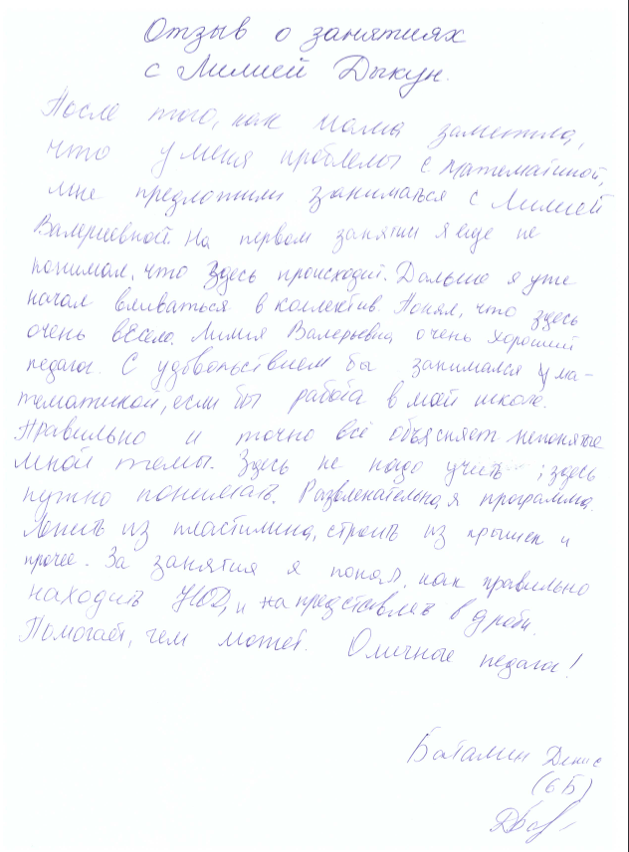 Отзыв о занятиях
с Лилией Дыкун.
После того, как мама заметила,
что у меня проблемы с математикой,
мне предложили заниматься с Лилией
Валериевной. На первом занятии я ещё не
понимал, что здесь происходит. Дальше я уже
начал вливаться в коллектив. Понял, что здесь
очень весело. Лилия Валерьевна очень хороший
педагог. С удовольствием бы занимался ма-
тематикой, если бы работа в моей школе.
Правильно и точно всё объясняет непонятые
мной темы. Здесь не надо учить ; здесь
нужно понимать. Развлекательная программа.
Лепить из пластилина, строить из крышек и
прочее. За занятия я понял, как правильно
находить НОД, и как представлять дроби.
Помогает, чем может. Отличное педагог!
Баталин Денис
(6Б)